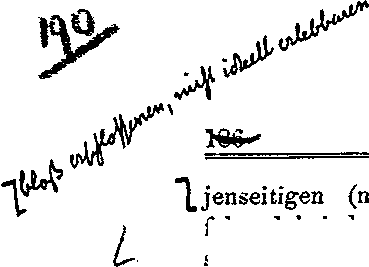 190
⌉bloß erschlossenen, nicht ideell erlebbaren
186
⌉jenseitigen (m